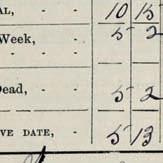 AL, - - 10 15
Week, - - 5 2
Dead, - - 5 2
VE DATE, - 5 13